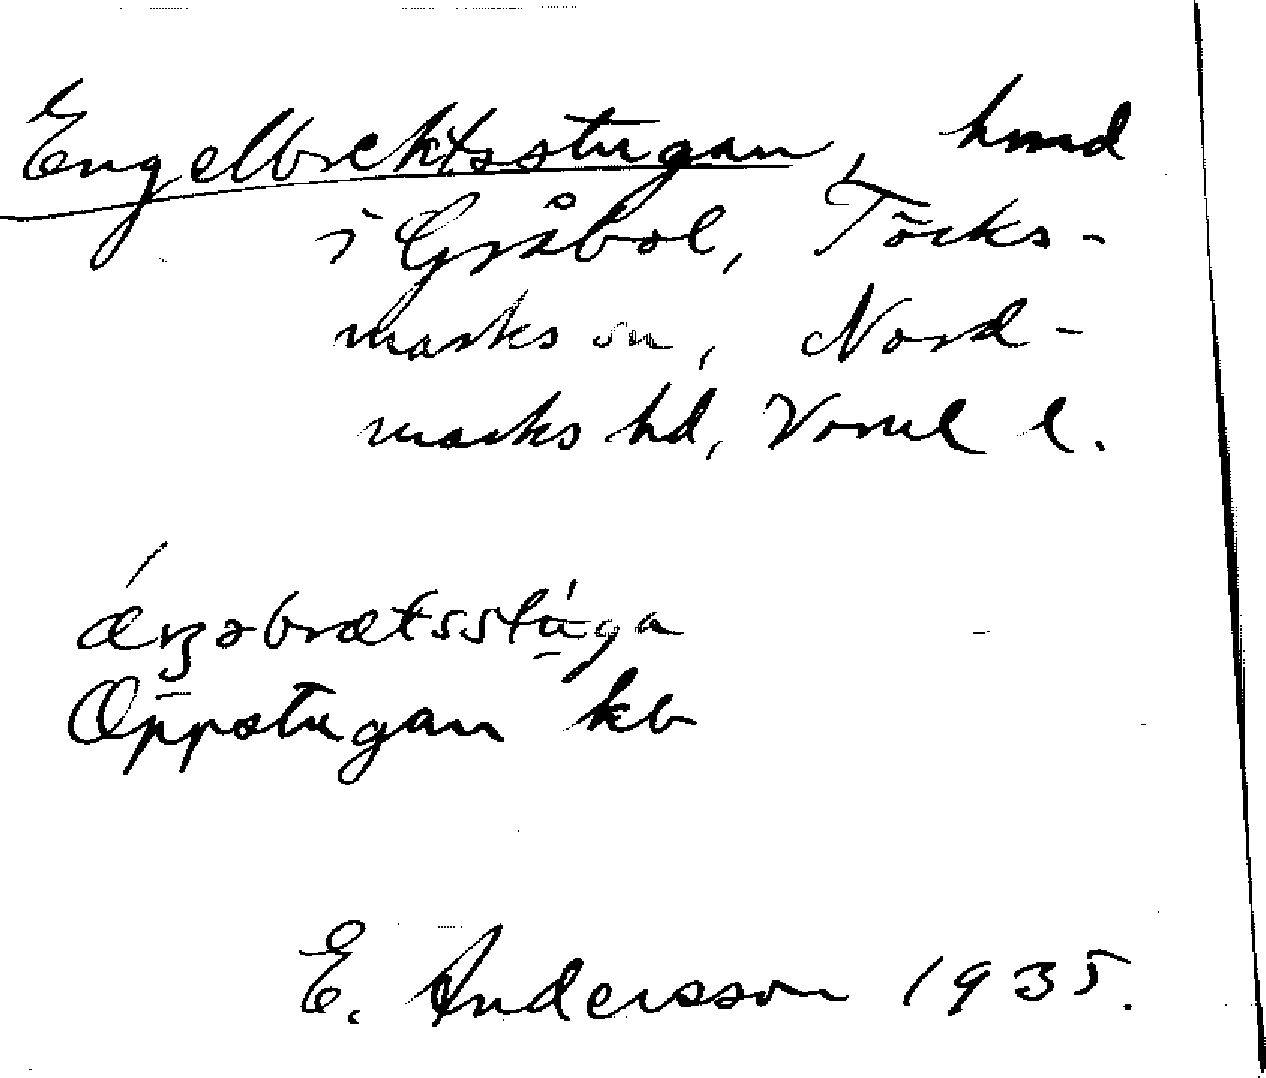 Engelbrektsstugan, hmd
i Gråbol, Töcks-
marks sn, Nord-
marks hd, Vrml l.
æŋəbrætsstúga
Oppstugan kb
E. Andersson 1935.